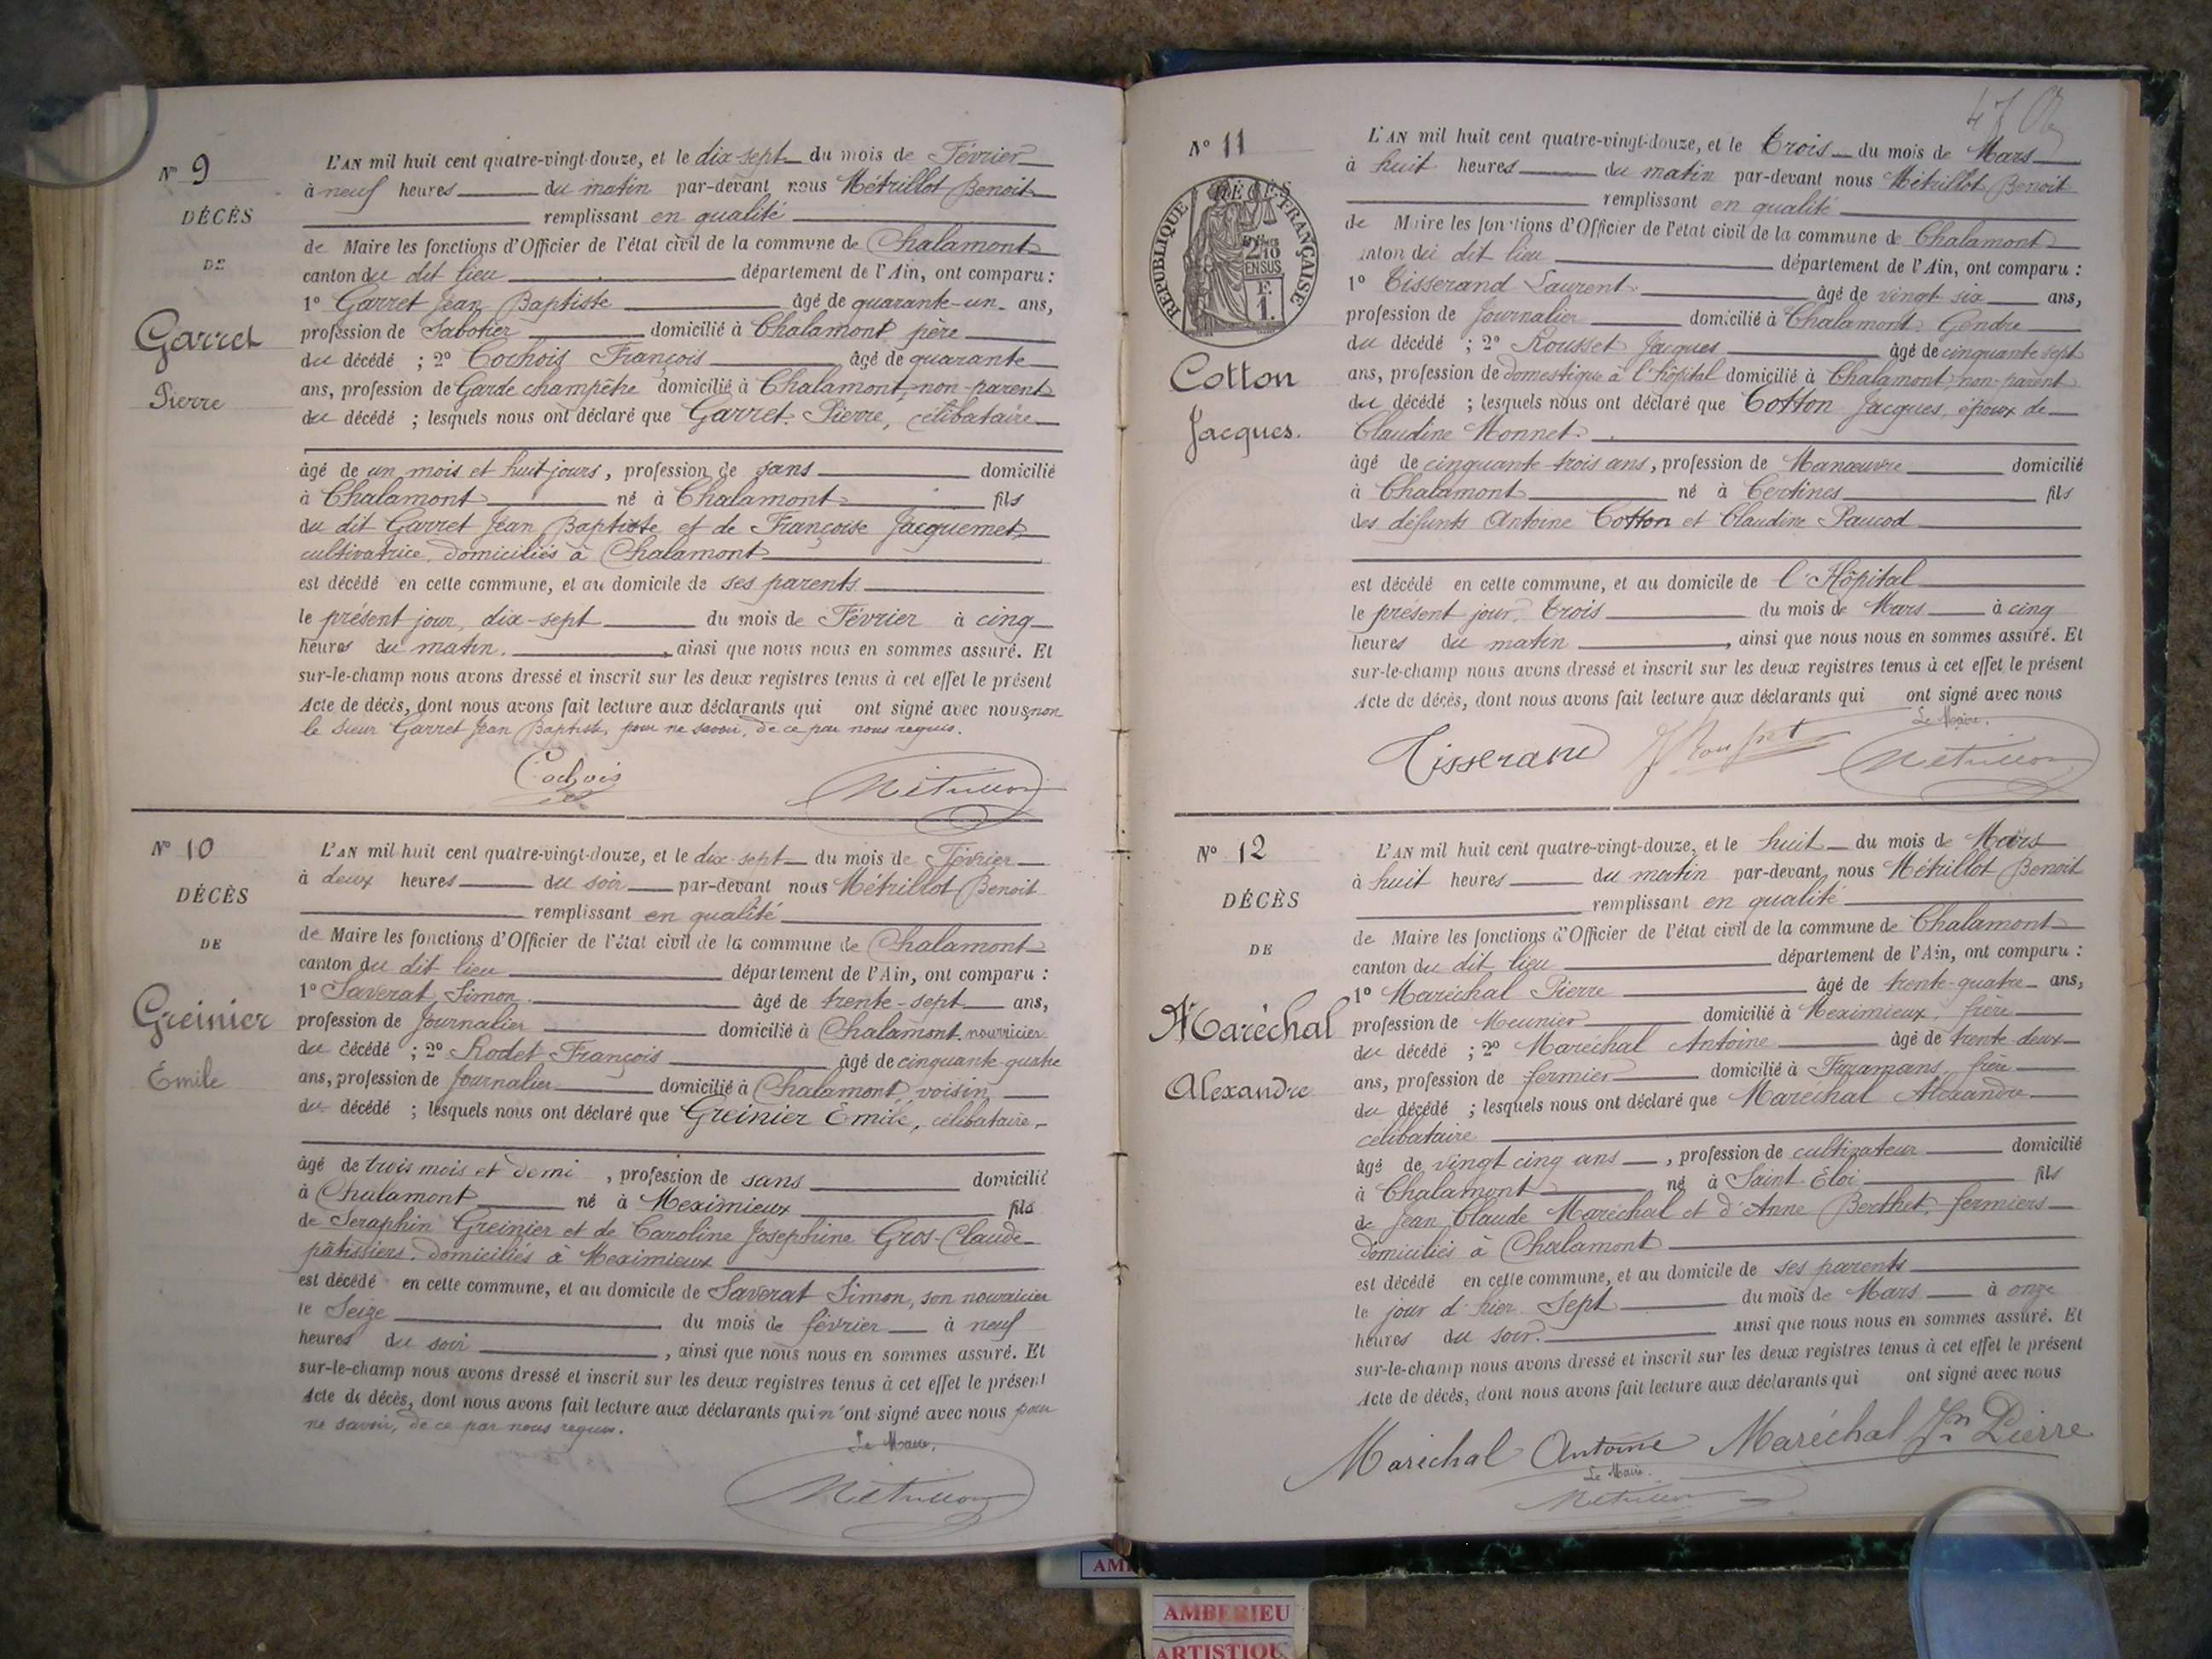 N° 9
DÉCÈS
DE
Garret
Pierre
L'AN mil huit cent quatre-vingt-douze, et le dix-sept du mois de Février
à neuf heures du matin par-devant nous Métrillot Benoit
remplissant en qualité
de Maire les fonctions d'Officier de l'état civil de la commune de Chalamont
canton du dit lieu département de l'Ain, ont comparu :
1° Garret Jean Baptiste âgé de quarante-un ans,
profession de Sabotier domicilié à Chalamont père
du décédé ; 2° Cochois François âgé de quarante
ans, profession de Garde champêtre domicilié à Chalamont, non-parent
du décédé ; lesquels nous ont déclaré que Garret Pierre, célibataire
âgé de un mois et huit jours, profession de sans domicilié
à Chalamont né à Chalamont fils
du dit Garret Jean Baptiste et de Françoise Jacquemet,
cultivatrice, domiciliés à Chalamont
est décédé en cette commune, et au domicile de ses parents
le présent jour, dix-sept du mois de Février à cinq
heures du matin, ainsi que nous nous en sommes assuré. Et
sur-le-champ nous avons dressé et inscrit sur les deux registres tenus à cet effet le présent
Acte de décès, dont nous avons fait lecture aux déclarants qui ont signé avec nous, non
le sieur Garret Jean Baptiste, pour ne savoir, de ce par nous requis.
Cochois Métrillot
N° 10
DÉCÈS
DE
Greinier
Emile
L'AN mil huit cent quatre-vingt-douze, et le dix-sept du mois de Février
à deux heures du soir par-devant nous Métrillot Benoit
remplissant en qualité
de Maire les fonctions d'Officier de l'état civil de la commune de Chalamont
canton du dit lieu département de l'Ain, ont comparu :
1° Saverat Simon âgé de trente-sept ans,
profession de Journalier domicilié à Chalamont, nourricier
du décédé ; 2° Rodet François âgé de cinquante-quatre
ans, profession de Journalier domicilié à Chalamont, voisin
du décédé ; lesquels nous ont déclaré que Greinier Emile, célibataire,
âgé de trois mois et demi, profession de sans domicilié
à Chalamont né à Meximieux fils
de Seraphin Greinier et de Caroline Josephine Gros-Claude
pâtissiers, domiciliés à Meximieux
est décédé en cette commune, et au domicile de Saverat Simon, son nourricier
le Seize du mois de février à neuf
heures du soir, ainsi que nous nous en sommes assuré. Et
sur-le-champ nous avons dressé et inscrit sur les deux registres tenus à cet effet le présent
Acte de décès, dont nous avons fait lecture aux déclarants qui n'ont signé avec nous pour
ne savoir, de ce par nous requis.
Le Maire,
Métrillot
N° 11
RÉPUBLIQUE FRANÇAISE
DÉCÈS
2/10
EN SUS
F.
1.
Cotton
Jacques.
L'AN mil huit cent quatre-vingt-douze, et le trois du mois de Mars
à huit heures du matin par-devant nous Métrillot Benoit
remplissant en qualité
de Maire les fonctions d'Officier de l'état civil de la commune de Chalamont
canton du dit lieu département de l'Ain, ont comparu :
1° Tisserand Laurent âgé de vingt-six ans,
profession de Journalier domicilié à Chalamont, Gendre
du décédé ; 2° Rousset Jacques âgé de cinquante sept
ans, profession de domestique à l'hôpital domicilié à Chalamont, non-parent
du décédé ; lesquels nous ont déclaré que Cotton Jacques, époux de
Claudine Monnet
âgé de cinquante-trois ans, profession de Manœuvre domicilié
à Chalamont né à Certines fils
des défunts Antoine Cotton et Claudine Paucod
est décédé en cette commune, et au domicile de l'Hôpital
le présent jour, trois du mois de Mars à cinq
heures du matin, ainsi que nous nous en sommes assuré. Et
sur-le-champ nous avons dressé et inscrit sur les deux registres tenus à cet effet le présent
Acte de décès, dont nous avons fait lecture aux déclarants qui ont signé avec nous
Le Maire,
Tisserand J Rousset Métrillot
N° 12
DÉCÈS
DE
Maréchal
Alexandre
L'AN mil huit cent quatre-vingt-douze, et le huit du mois de Mars
à huit heures du matin par-devant nous Métrillot Benoit
remplissant en qualité
de Maire les fonctions d'Officier de l'état civil de la commune de Chalamont
canton du dit lieu département de l'Ain, ont comparu :
1° Maréchal Pierre âgé de trente-quatre ans,
profession de Meunier domicilié à Meximieux, frère
du décédé ; 2° Maréchal Antoine âgé de trente-deux
ans, profession de fermier domicilié à Faramans, frère
du décédé ; lesquels nous ont déclaré que Maréchal Alexandre
célibataire
âgé de vingt cinq ans, profession de cultivateur domicilié
à Chalamont né à Saint Eloi fils
de Jean Claude Maréchal et d'Anne Berthet, fermiers
domiciliés à Chalamont
est décédé en cette commune, et au domicile de ses parents
le jour d'hier Sept du mois de Mars à onze
heures du soir. ainsi que nous nous en sommes assuré. Et
sur-le-champ nous avons dressé et inscrit sur les deux registres tenus à cet effet le présent
Acte de décès, dont nous avons fait lecture aux déclarants qui ont signé avec nous
Maréchal Antoine Maréchal Jn Pierre
Le Maire.
Métrillot
AMBERIEU
ARTISTIQU